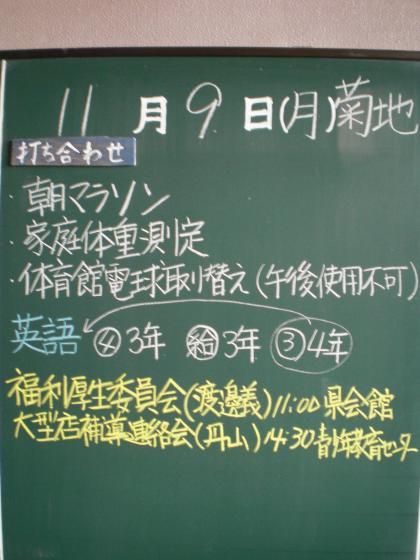 11月9日(月)菊地
打ち合わせ
・朝マラソン
・家庭体重測定
・体育館電球取り替え(午後使用不可)
英語 ④3年 ㊗3年 ③4年
福利厚生委員会(渡邊義)11:00県会館
大型店補導連絡会(丹山)14:30青少年教育センター